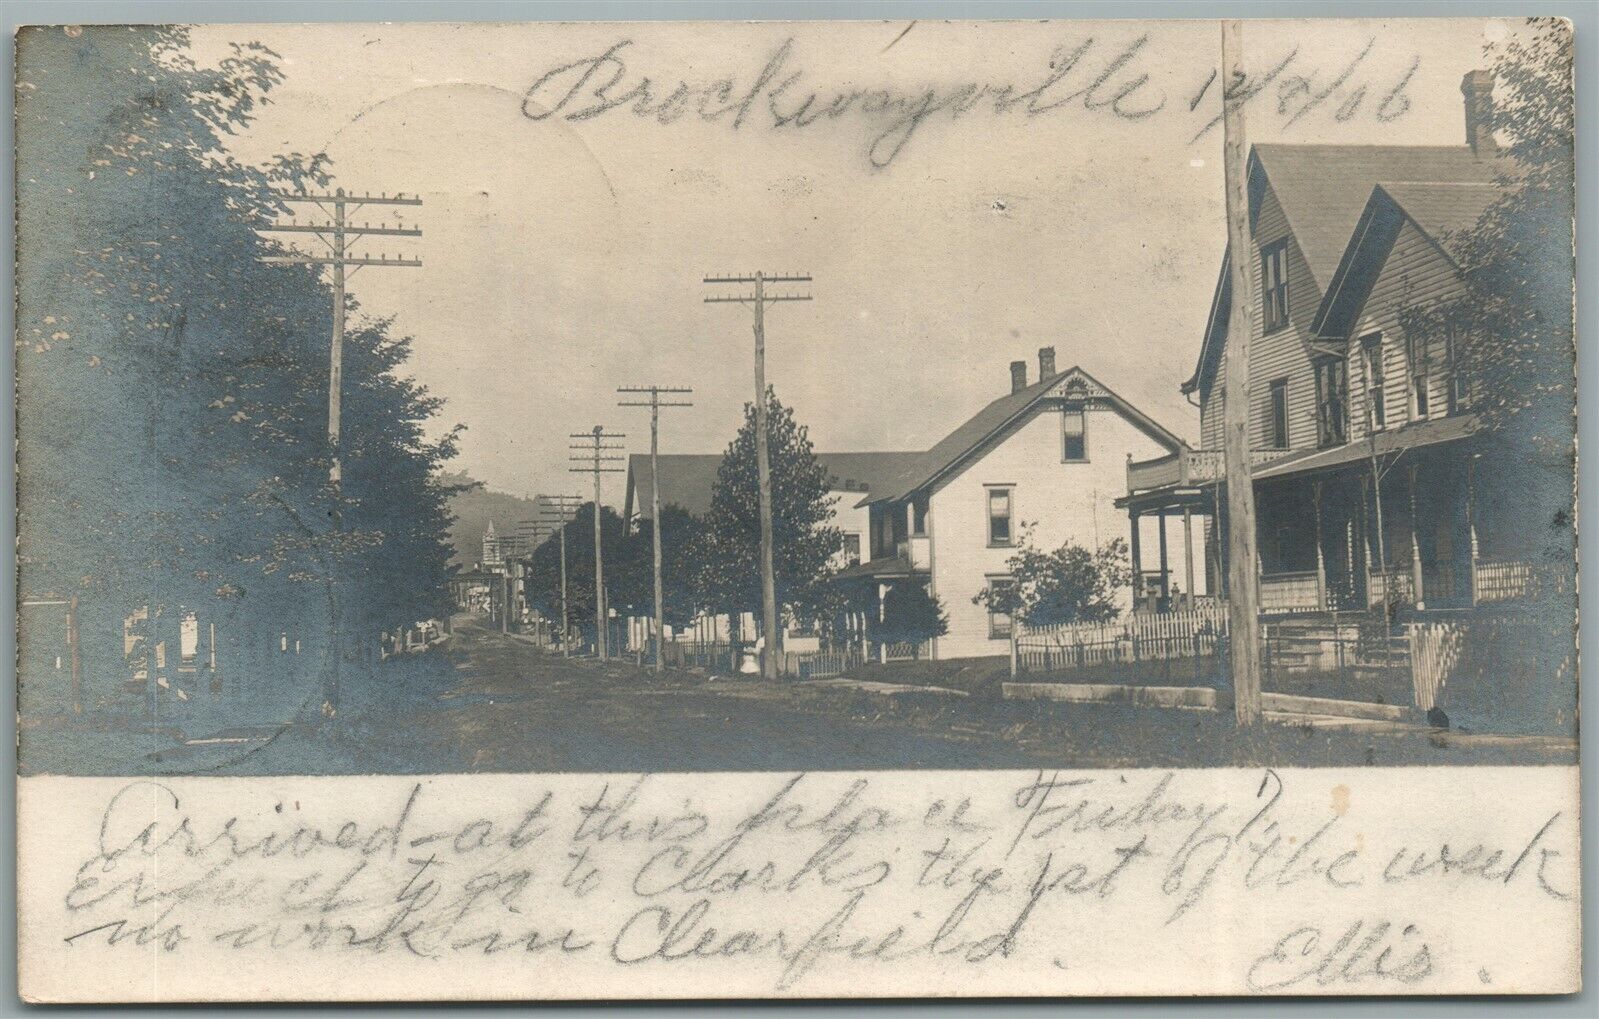 Brockwayville 12/8/06
Arrived at this place Friday P.
Expect to go to Clarks the 1st of the week
no work in Clearfield.
Ellis.